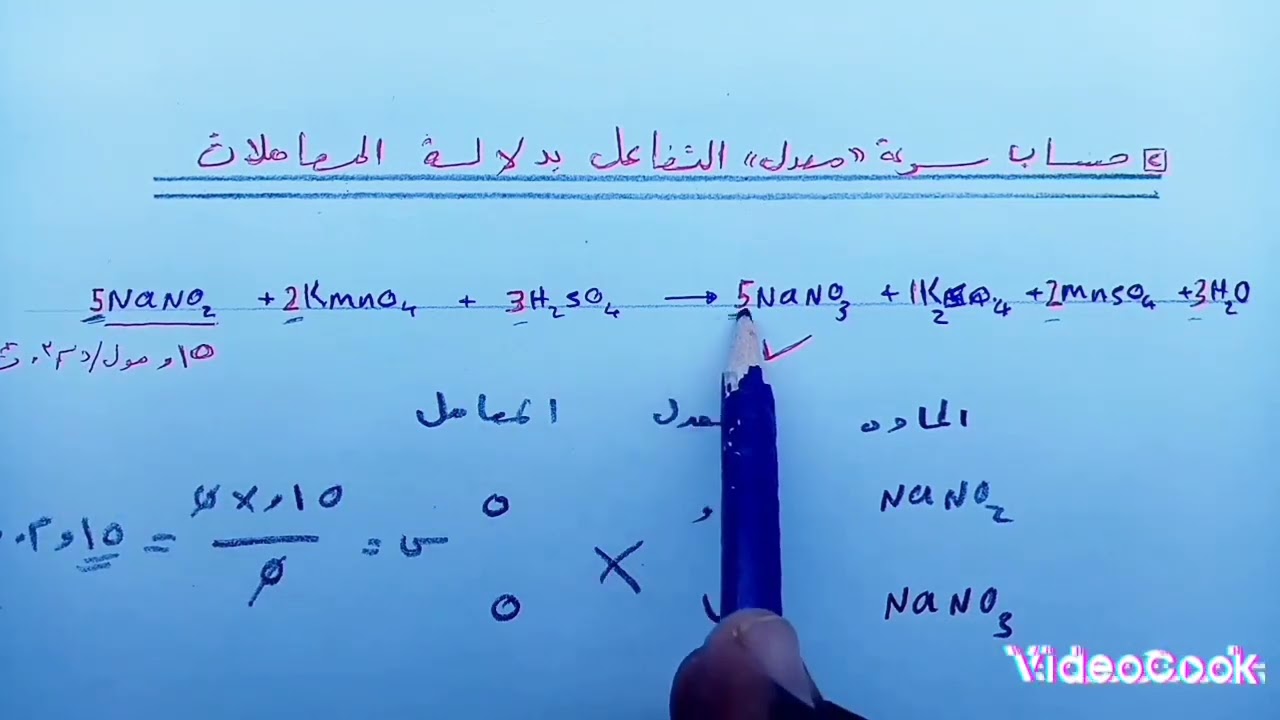 ٢ حساب سرعة «معدل» التفاعل بدلالة المعاملات
5NaNO2 + 2KmnO4 + 3H2SO4 → 5NaNO3 + 1K2SO4 + 2mnSO4 + 3H2O
١٥و مول/دسم٣. ث
المادة المعدل المعامل
NaNO2 و ٥ س = ٥×و١٥ / ٥ = ١٥و
NaNO3 × ٥
VideoCook